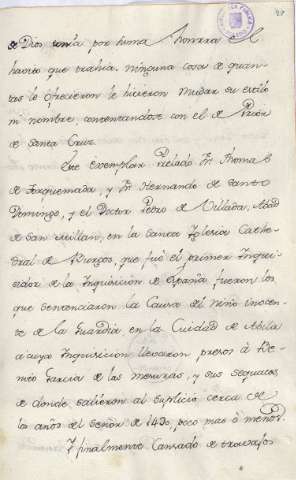 de Dios, tenía por suma honrra el
havito que trahia. ninguna cosa de quan-
tas le ofrecieron le hicieron mudar su estilo
ni nombre, contentandose con el de Prior
de Santa Cruz.
Este exemplar Prelado Fr. Thomas
de Torquemada, y Fr. Hernando de Santo
Domingo, y el Doctor Pedro de Villada, Abad
de San Millan, en la Santa Iglesia Cathe-
dral de Burgos, que fue el primer Inqui-
sidor de la Inquisicion de España fueron los
que sentenciaron la Causa del Niño inocen-
te de la Guardia en la Ciudad de Abila
a cuya Inquisicion llevaron presos á Be-
nito Garcia de las Mesuras, y sus sequaces
de donde salieron al suplicio cerca de
los años del Señor de 1490, poco mas ó menos.
Y finalmente Cansado de travajos